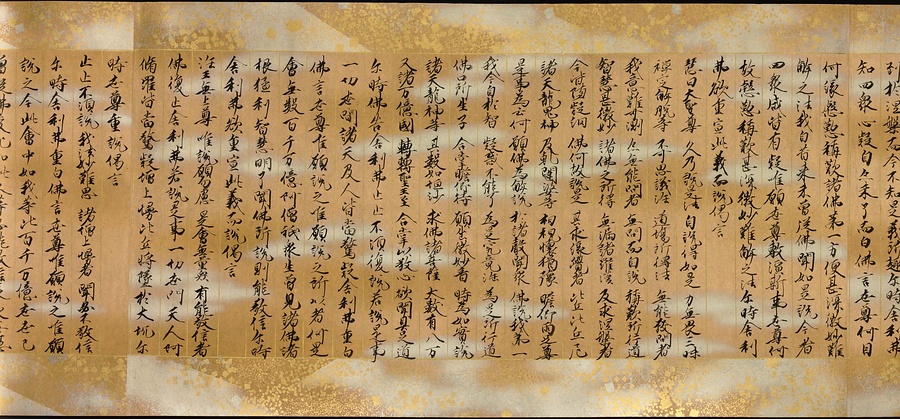 知四衆心疑自亦未了而白佛言世尊何因
何緣慇懃稱歎諸佛第一方便甚深微妙難
解之法我自昔來未曾從佛聞如是說今者
四衆咸皆有疑唯願世尊敷演斯事世尊何
故慇懃稱歎甚深微妙難解之法尓時舍利
弗欲重宣此義而說偈言
慧日大聖尊 久乃說是法 自說得如是 力無畏三昧
禪定解脫等 不可思議法 道場所得法 無能發問者
我意難可測 亦無能問者 無問而自說 稱歎所行道
智慧甚微妙 諸佛之所得 無漏諸羅漢 及求涅槃者
今皆墮疑網 佛何故說是 其求緣覺者 比丘比丘尼
諸天龍鬼神 及乾闥婆等 相視懷猶豫 瞻仰兩足尊
是事為云何 願佛為解說 於諸聲聞衆 佛說我第一
我今自於智 疑惑不能了 為是究竟法 為是所行道
佛口所生子 合掌瞻仰待 願出微妙音 時為如實說
諸天龍神等 其數如恒沙 求佛諸菩薩 大數有八万
又諸万億國 轉輪聖王至 合掌以敬心 欲聞具足道
尓時佛告舍利弗止止不須復說若說是事
一切世間諸天及人皆當驚疑舍利弗重白
佛言世尊唯願說之唯願說之所以者何是
會無數百千万億阿僧祇衆生曾見諸佛諸
根猛利智慧明了聞佛所說則能敬信尓時
舍利弗欲重宣此義而說偈言
法王無上尊 唯說願勿慮 是會無量衆 有能敬信者
佛復止舍利弗若說是事一切世間天人阿
修羅皆當驚疑增上慢比丘將墜於大坑尓
時世尊重說偈言
止止不須說 我法妙難思 諸增上慢者 聞必不敬信
尓時舍利弗重白佛言世尊唯願說之唯願
說之今此會中如我等比百千万億世世已